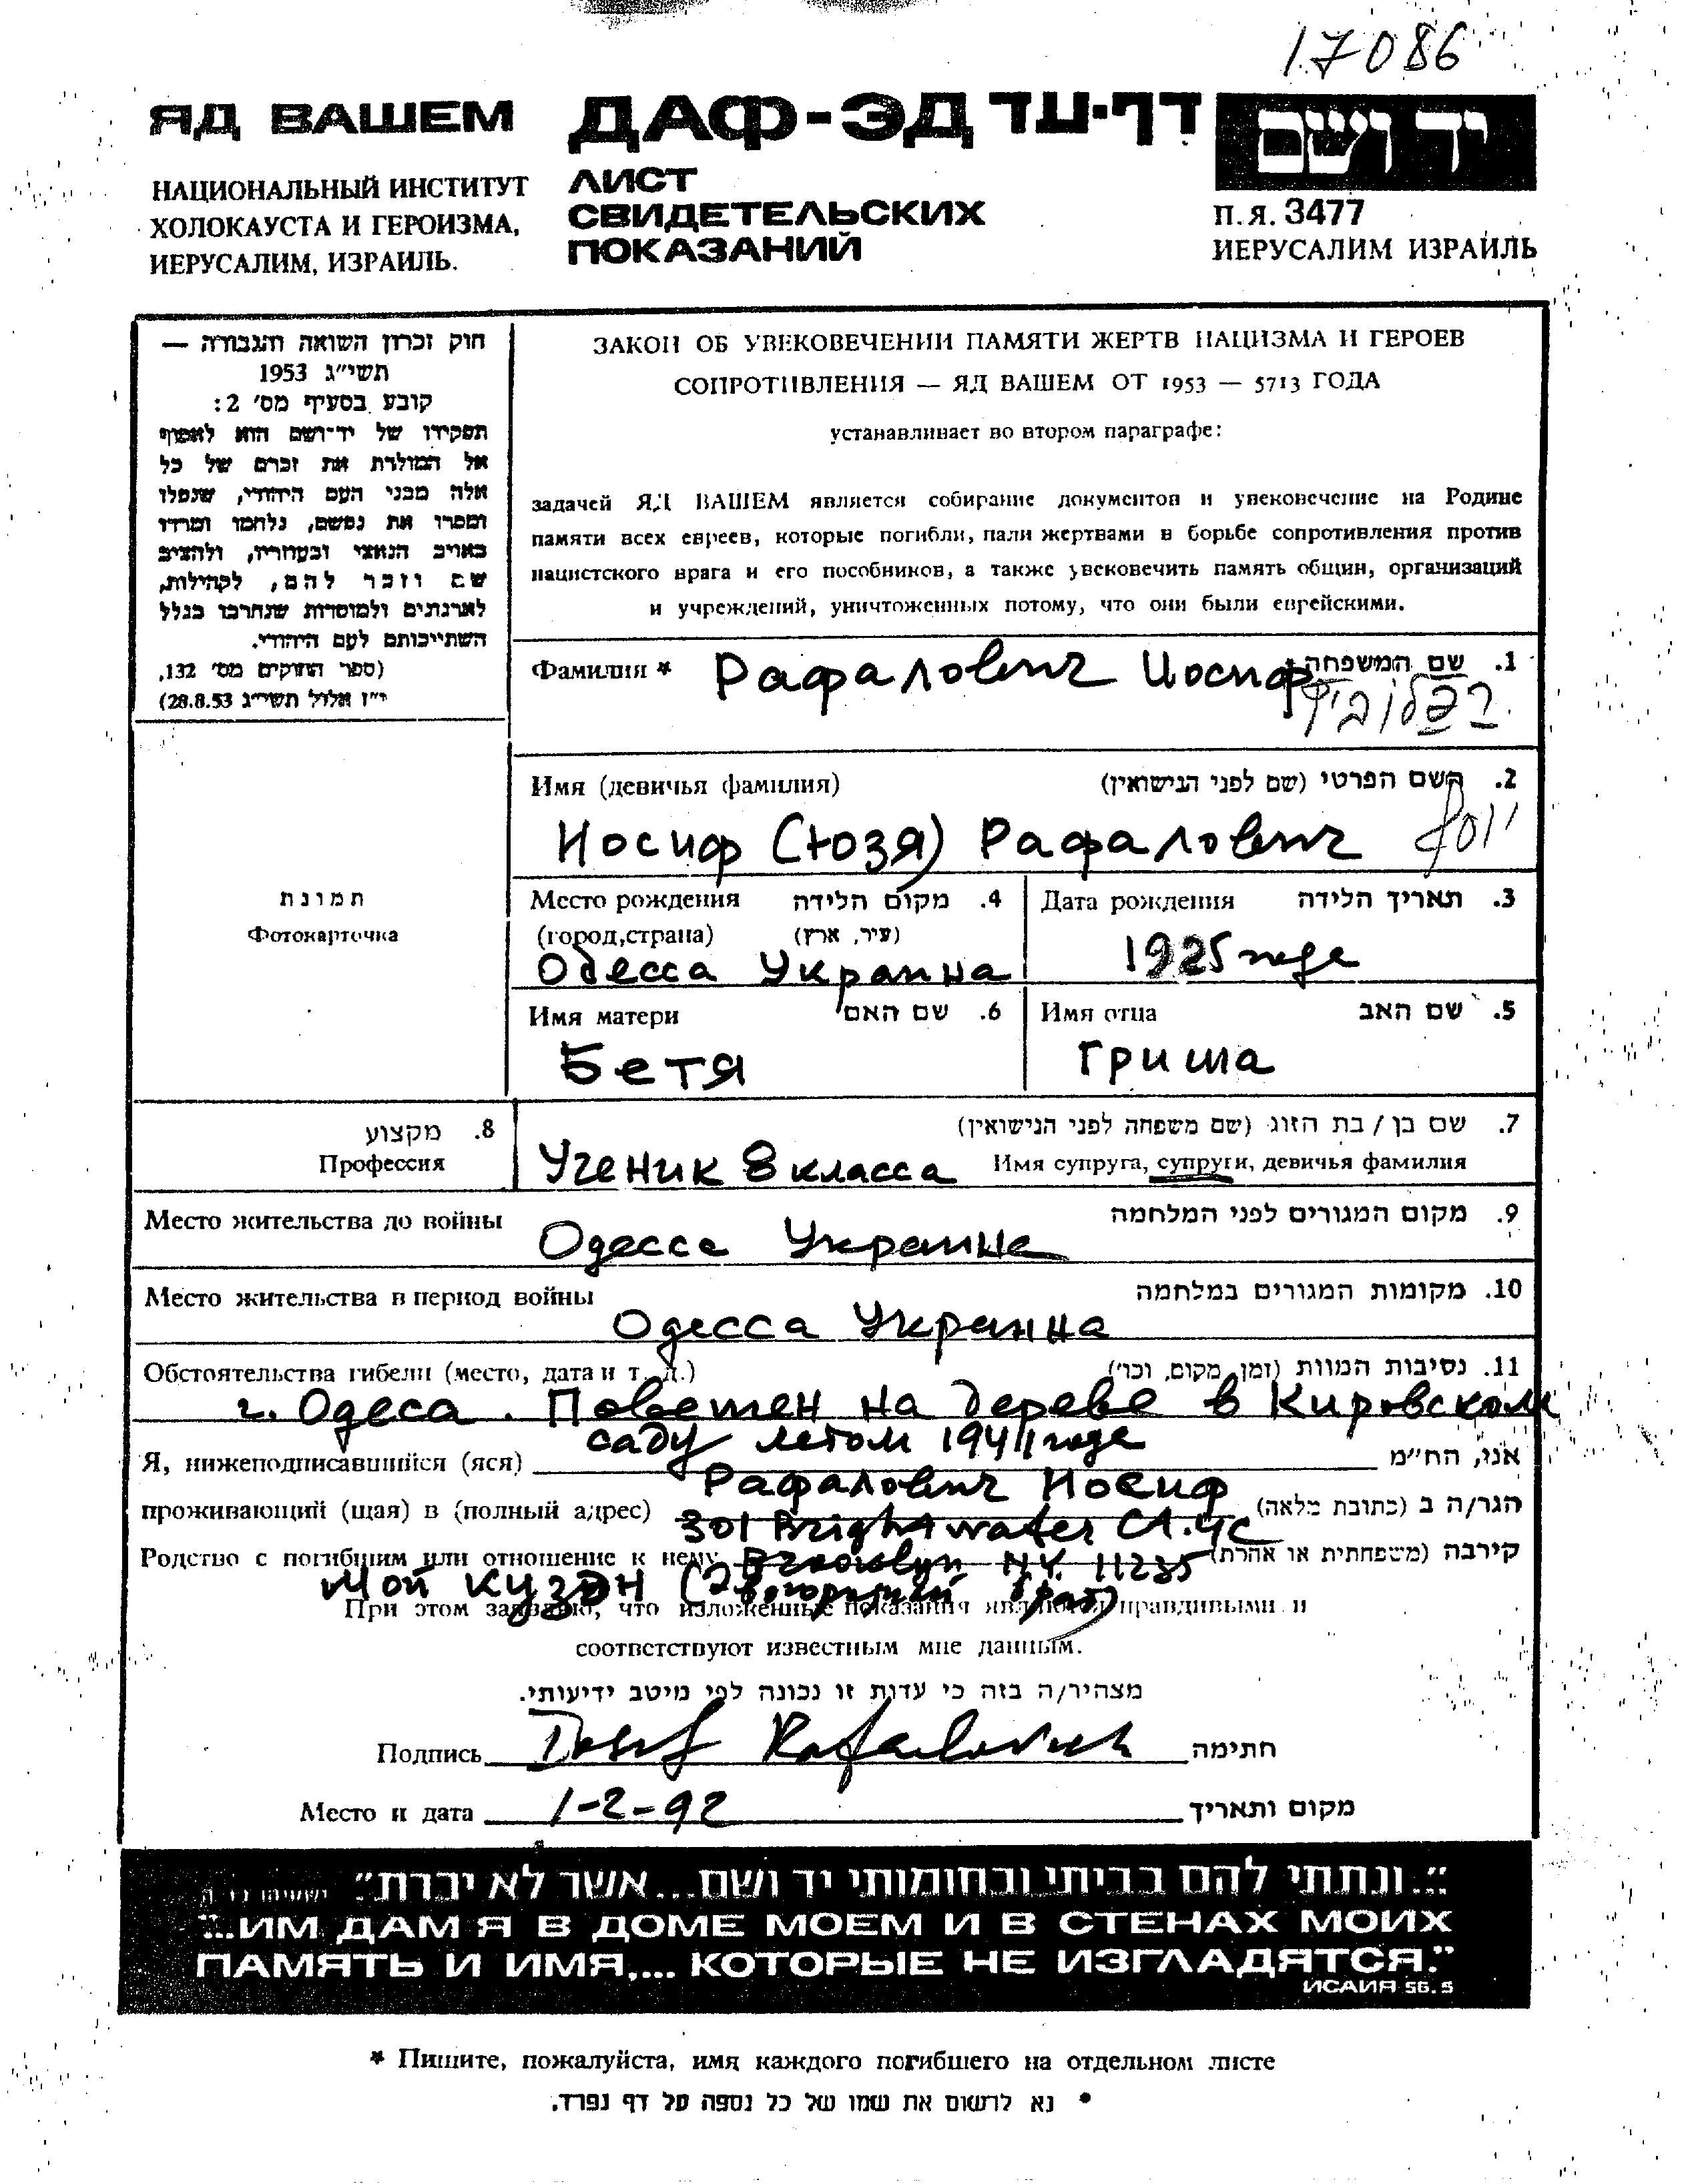 17086
ЯД ВАШЕМ
ДАФ-ЭД דף-עד
יד ושם
НАЦИОНАЛЬНЫЙ ИНСТИТУТ
ХОЛОКАУСТА И ГЕРОИЗМА,
ИЕРУСАЛИМ, ИЗРАИЛЬ.
ЛИСТ
СВИДЕТЕЛЬСКИХ
ПОКАЗАНИЙ
П.Я. 3477
ИЕРУСАЛИМ ИЗРАИЛЬ
חוק זכרון השואה והגבורה —
תשי״ג 1953
קובע בסעיף מס׳ 2:
תפקידו של יד-ושם הוא לאסוף
אל המולדת את זכרם של כל
אלה מבני העם היהודי, שנפלו
ומסרו את נפשם, נלחמו ומרדו
באויב הנאצי ובעוזריו, ולהציב
שם וזכר להם, לקהילות,
לארגונים ולמוסדות שנחרבו בגלל
השתייכותם לעם היהודי.
(ספר החוקים מס׳ 132,
י״ז אלול תשי״ג 28.8.53)
ЗАКОН ОБ УВЕКОВЕЧЕНИИ ПАМЯТИ ЖЕРТВ НАЦИЗМА И ГЕРОЕВ
СОПРОТИВЛЕНИЯ — ЯД ВАШЕМ ОТ 1953 — 5713 ГОДА
устанавливает во втором параграфе:
задачей ЯД ВАШЕМ является собирание документов и увековечение на Родине
памяти всех евреев, которые погибли, пали жертвами в борьбе сопротивления против
нацистского врага и его пособников, а также увековечить память общин, организаций
и учреждений, уничтоженных потому, что они были еврейскими.
Фамилия * Рафалович Иосиф 1. שם המשפחה
רפלוביץ
Имя (девичья фамилия) 2. השם הפרטי (שם לפני הנישואין)
Иосиф (Юзя) Рафалович יוסף
תמונת
Фотокарточка
Место рождения 4. מקום הלידה
(город,страна) (עיר, ארץ)
Одесса Украина
Дата рождения 3. תאריך הלידה
1925 годе
Имя матери 6. שם האם
Бетя
Имя отца 5. שם האב
Гриша
8. מקצוע
Профессия
Ученик 8 класса
7. שם בן / בת הזוג (שם משפחה לפני הנישואין)
Имя супруга, супруги, девичья фамилия
Место жительства до войны 9. מקום המגורים לפני המלחמה
Одесса Украине
Место жительства в период войны 10. מקומות המגורים במלחמה
Одесса Украина
Обстоятельства гибели (место, дата и т. д.) 11. נסיבות המוות (זמן, מקום, וכו׳)
г. Одеса. Повешен на дереве в Кировском
саду летом 1941 годе
Я, нижеподписавшийся (яся) אני, הח״מ
Рафалович Иосиф
проживающий (щая) в (полный адрес) 301 Brightwater Ct. 4C הגר/ה ב (כתובת מלאה)
Родство с погибшим или отношение к нему Brooklyn N.Y. 11235 קירבה (משפחתית או אחרת)
Мой кузэн (двоюродный брат)
При этом заявляю, что изложенные показания являются правдивыми и
соответствуют известным мне данным.
מצהיר/ה בזה כי עדות זו נכונה לפי מיטב ידיעותי.
Подпись Iosif Rafalovich חתימה
Место и дата 1-2-92 מקום ותאריך
"...ונתתי להם בביתי ובחומותי יד ושם...אשר לא יכרת"
"...ИМ ДАМ Я В ДОМЕ МОЕМ И В СТЕНАХ МОИХ
ПАМЯТЬ И ИМЯ,... КОТОРЫЕ НЕ ИЗГЛАДЯТСЯ."
ИСАИЯ 56.5
* Пишите, пожалуйста, имя каждого погибшего на отдельном листе
* נא לרשום את שמו של כל נספה על דף נפרד.